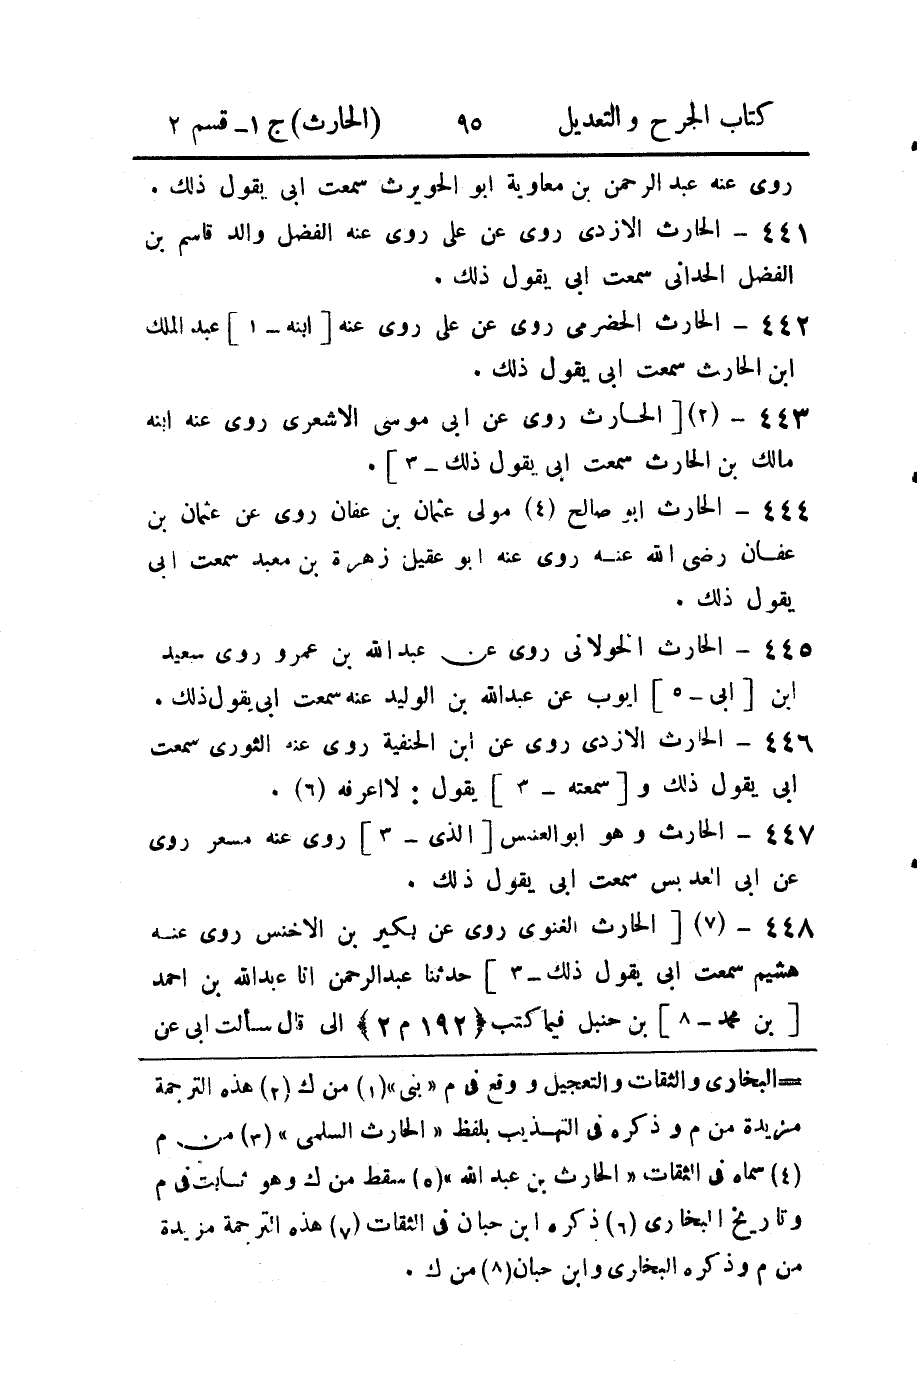 كتاب الجرح والتعديل ٩٥ (الحارث) ج ١ـ قسم ٢
روى عنه عبد الرحمن بن معاوية ابو الحويرث سمعت ابى يقول ذلك .
٤٤١ - الحارث الازدى روى عن على روى عنه الفضل والد قاسم بن
الفضل الحدانى سمعت ابى يقول ذلك .
٤٤٢ - الحارث الحضرمى روى عن على روى عنه [ ابنه - ١ ] عبد الملك
ابن الحارث سمعت ابى يقول ذلك .
٤٤٣ - (٢) [ الحارث روى عن ابى موسى الاشعرى روى عنه ابنه
مالك بن الحارث سمعت ابى يقول ذلك - ٣ ] .
٤٤٤ - الحارث ابو صالح (٤) مولى عثمان بن عفان روى عن عثمان بن
عفان رضى الله عنه روى عنه ابو عقيل زهرة بن معبد سمعت ابى
يقول ذلك .
٤٤٥ - الحارث الخولانى روى عن عبدالله بن عمرو روى سعيد
ابن [ ابى - ٥ ] ايوب عن عبدالله بن الوليد عنه سمعت ابى يقول ذلك .
٤٤٦ - الحارث الازدى روى عن ابن الحنفية روى عنه الثورى سمعت
ابى يقول ذلك و [ سمعته - ٣ ] يقول : لااعرفه (٦) .
٤٤٧ - الحارث و هو ابوالعنبس [ الذى - ٣ ] روى عنه مسعر روى
عن ابى العدبس سمعت ابى يقول ذلك .
٤٤٨ - (٧) [ الحارث الغنوى روى عن بكير بن الاخنس روى عنه
هشيم سمعت ابى يقول ذلك - ٣ ] حدثنا عبدالرحمن انا عبدالله بن احمد
[ بن محمد - ٨ ] بن حنبل فيما كتب ﴿١٩٢ م ٢﴾ الى قال سألت ابى عن
=البخارى والثقات والتعجيل و وقع فى م «بنى» (١) من ك (٢) هذه الترجمة
مزيدة من م و ذكره فى التهذيب بلفظ « الحارث السلمى » (٣) من م
(٤) سماه فى الثقات « الحارث بن عبد الله » (٥) سقط من ك وهو ثابت فى م
وتاريخ البخارى (٦) ذكره ابن حبان فى الثقات (٧) هذه الترجمة مزيدة
من م وذكره البخارى وابن حبان (٨) من ك .